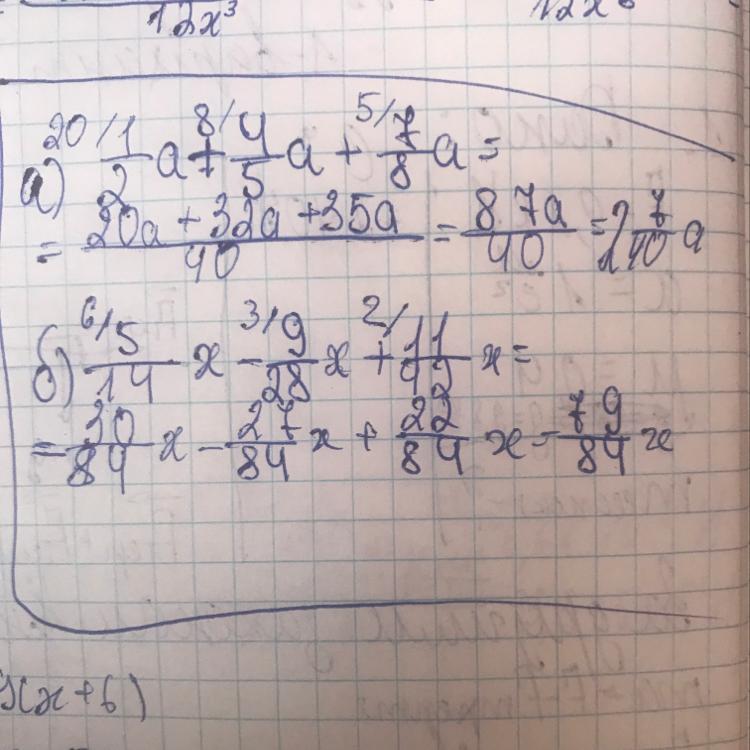 12x³ 12x
а) 20/ 1/2 a + 8/ 4/5 a + 5/ 7/8 a =
= (20a + 32a + 35a)/40 = 87a/40 = 2 7/40 a
б) 6/ 5/14 x - 3/ 9/28 x + 2/ 11/42 x =
= 30/84 x - 27/84 x + 22/84 x - 79/84 x
(x+6)